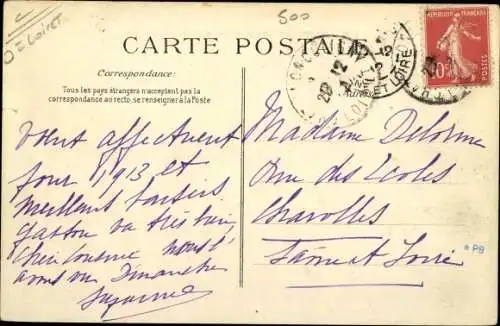 500
O = Loiret
CARTE POSTALE
Correspondance:
Tous les pays étrangers n'acceptent pas la
correspondance au recto, se renseigner à la Poste
RÉPUBLIQUE FRANÇAISE
10c
ET LOIRE
Vœux affectueux
pour 1913 et
meilleurs baisers
Gaston va très bien
nous l'
avons vu Dimanche
Suzanne
Madame Delorme
Rue des Ecoles
Charolles
Saône et Loire
* PB